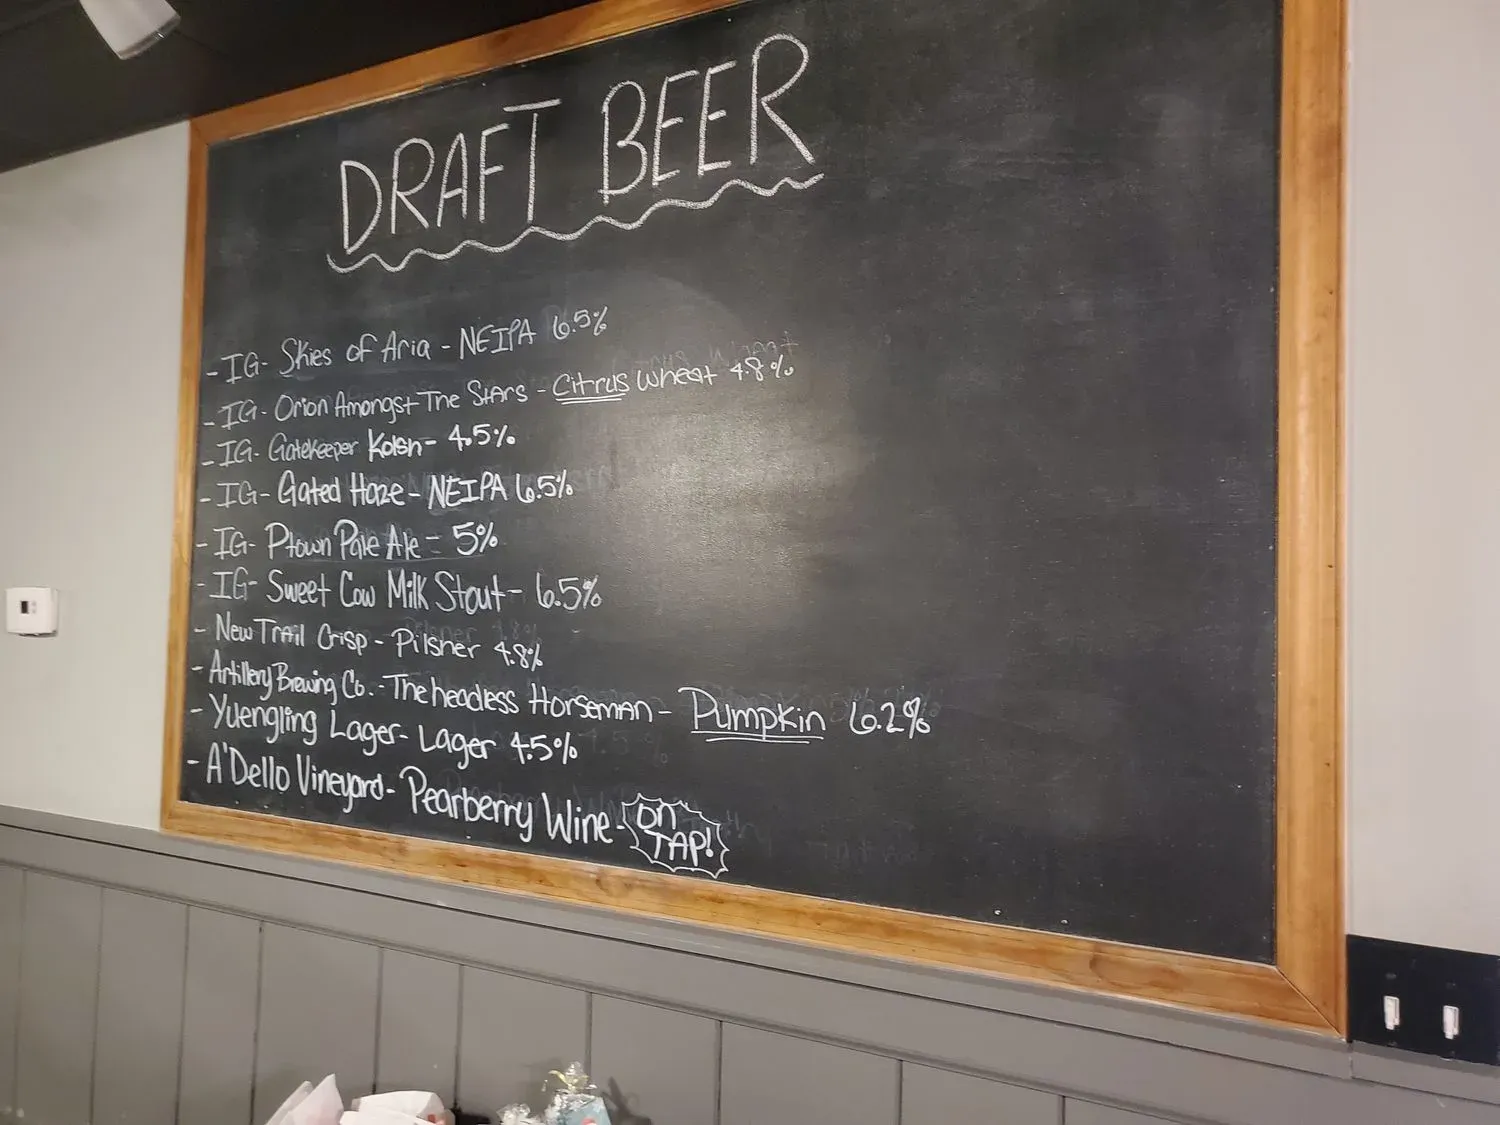 DRAFT BEER
- IG- Skies of Aria - NEIPA 6.5%
- IG- Orion Amongst The Stars - Citrus Wheat 4.8%
- IG- Gatekeeper Kolsh- 4.5%
- IG- Gated Haze - NEIPA 6.5%
- IG- Ptown Pale Ale - 5%
- IG- Sweet Cow Milk Stout - 6.5%
- New Trail Crisp - Pilsner 4.8%
- Artillery Brewing Co. - The headless Horseman - Pumpkin 6.2%
- Yuengling Lager- Lager 4.5%
- A'Dello Vineyard- Pearberry Wine - ON TAP!